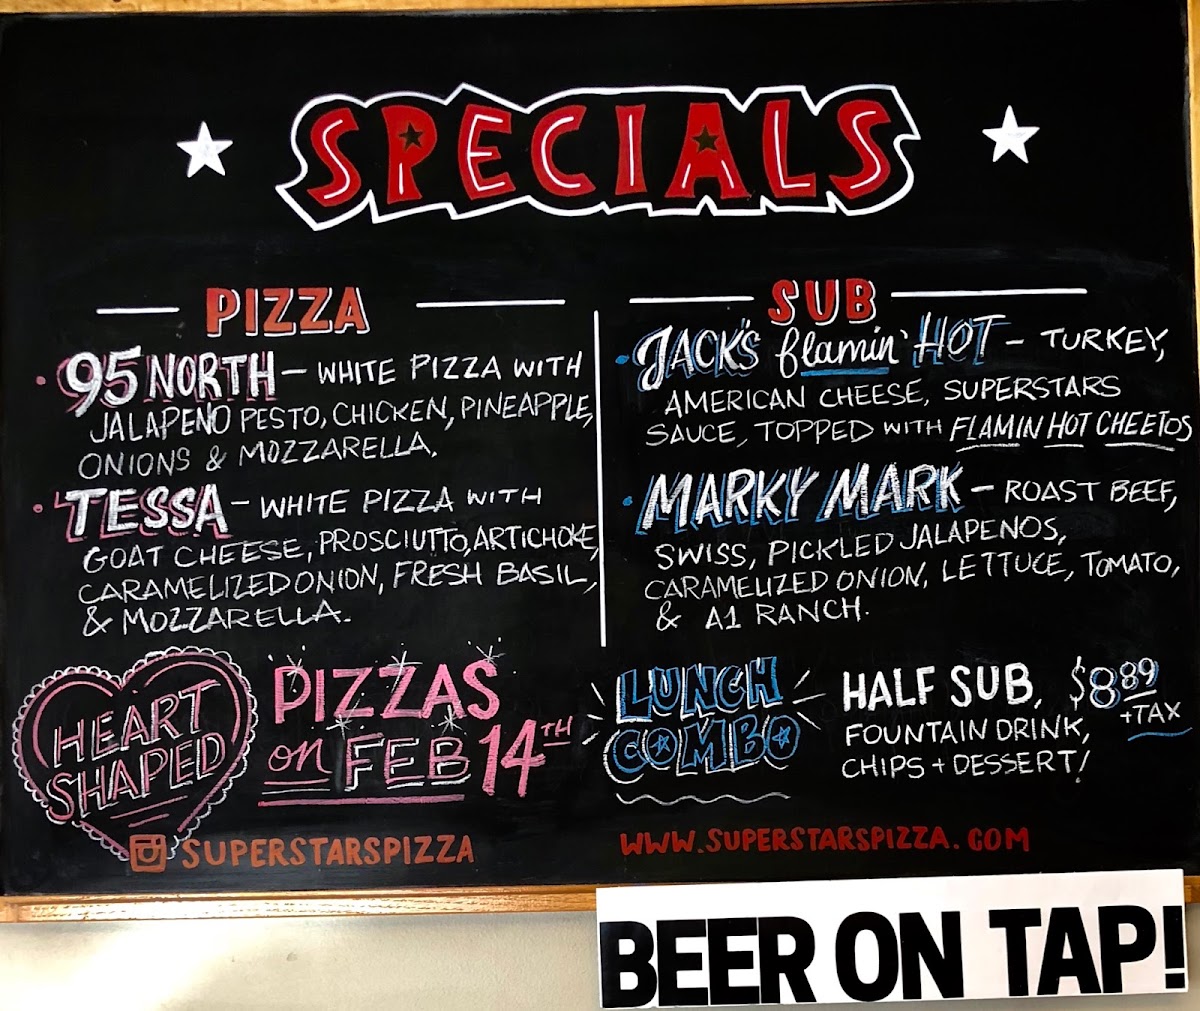 SPECIALS
PIZZA
95 NORTH - WHITE PIZZA WITH
JALAPENO PESTO, CHICKEN, PINEAPPLE,
ONIONS & MOZZARELLA.
TESSA - WHITE PIZZA WITH
GOAT CHEESE, PROSCIUTTO, ARTICHOKE,
CARAMELIZED ONION, FRESH BASIL,
& MOZZARELLA.
HEART
SHAPED
PIZZAS
on FEB 14TH
SUPERSTARSPIZZA
SUB
JACK'S flamin' HOT - TURKEY,
AMERICAN CHEESE, SUPERSTARS
SAUCE, TOPPED WITH FLAMIN HOT CHEETOS
MARKY MARK - ROAST BEEF,
SWISS, PICKLED JALAPENOS,
CARAMELIZED ONION, LETTUCE, TOMATO,
& A1 RANCH.
LUNCH
COMBO
HALF SUB, $8.89
+TAX
FOUNTAIN DRINK,
CHIPS + DESSERT!
WWW.SUPERSTARSPIZZA.COM
BEER ON TAP!